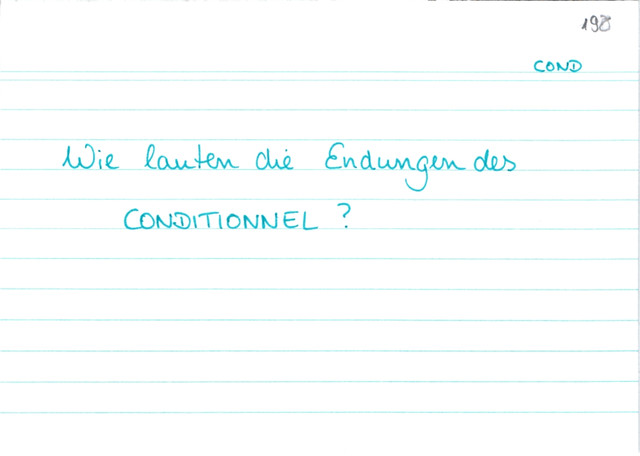 198
COND
Wie lauten die Endungen des
CONDITIONNEL ?